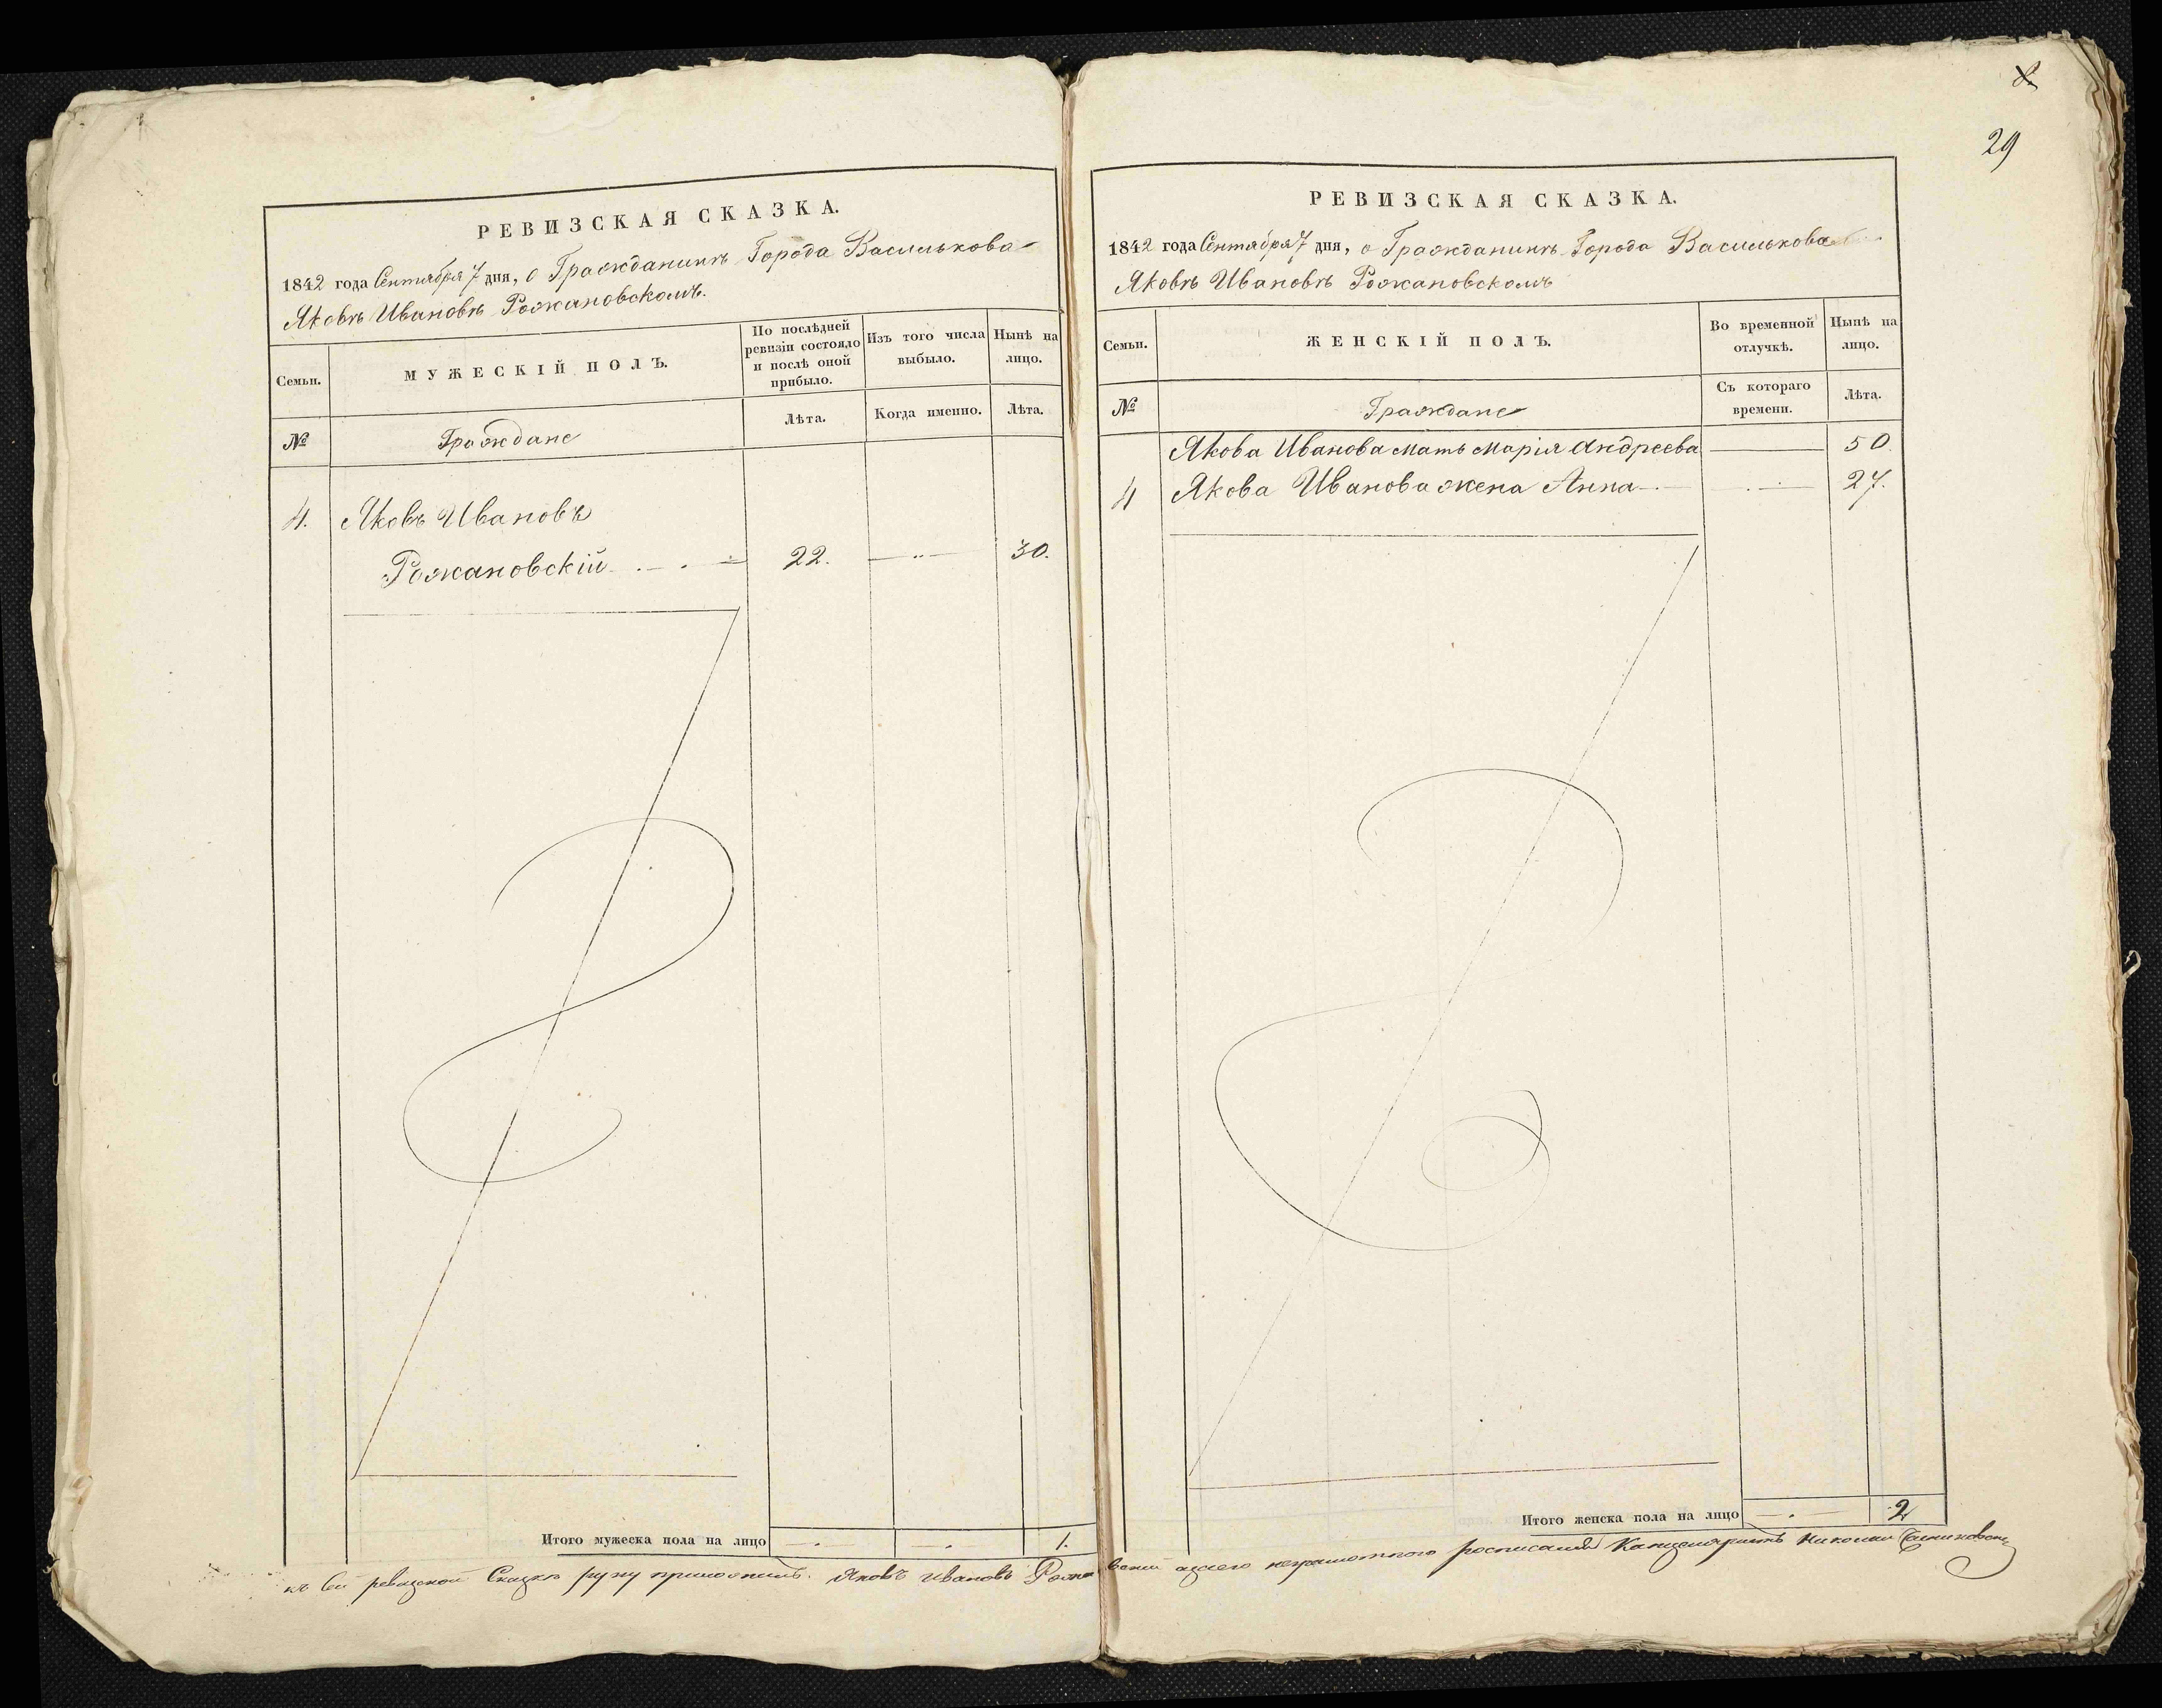 РЕВИЗСКАЯ СКАЗКА.
1842 года Сентября 7 дня, о Гражданинѣ Города Василькова
Яковѣ Ивановѣ Рожановскомъ.
Семьи.
МУЖЕСКІЙ ПОЛЪ.
По послѣдней ревизіи состояло и послѣ оной прибыло.
Изъ того числа выбыло.
Нынѣ на лицо.
№
Граждане
Лѣта.
Когда именно.
Лѣта.
4. Яковъ Ивановъ
Рожановскій 22. — 30.
Итого мужеска пола на лицо — — 1.
8
29
РЕВИЗСКАЯ СКАЗКА.
1842 года Сентября 7 дня, о Гражданинѣ Города Василькова
Яковѣ Ивановѣ Рожановскомъ
Семьи.
ЖЕНСКІЙ ПОЛЪ.
Во временной отлучкѣ.
Нынѣ на лицо.
№
Граждане
Съ котораго времени.
Лѣта.
Якова Иванова мать Марія Андреева — 50.
4 Якова Иванова жена Анна — 27.
Итого женска пола на лицо — 2
къ сей ревизской Сказкѣ руку приложилъ. Яковъ Ивановъ неграмотного росписался Канцеляристъ Николай